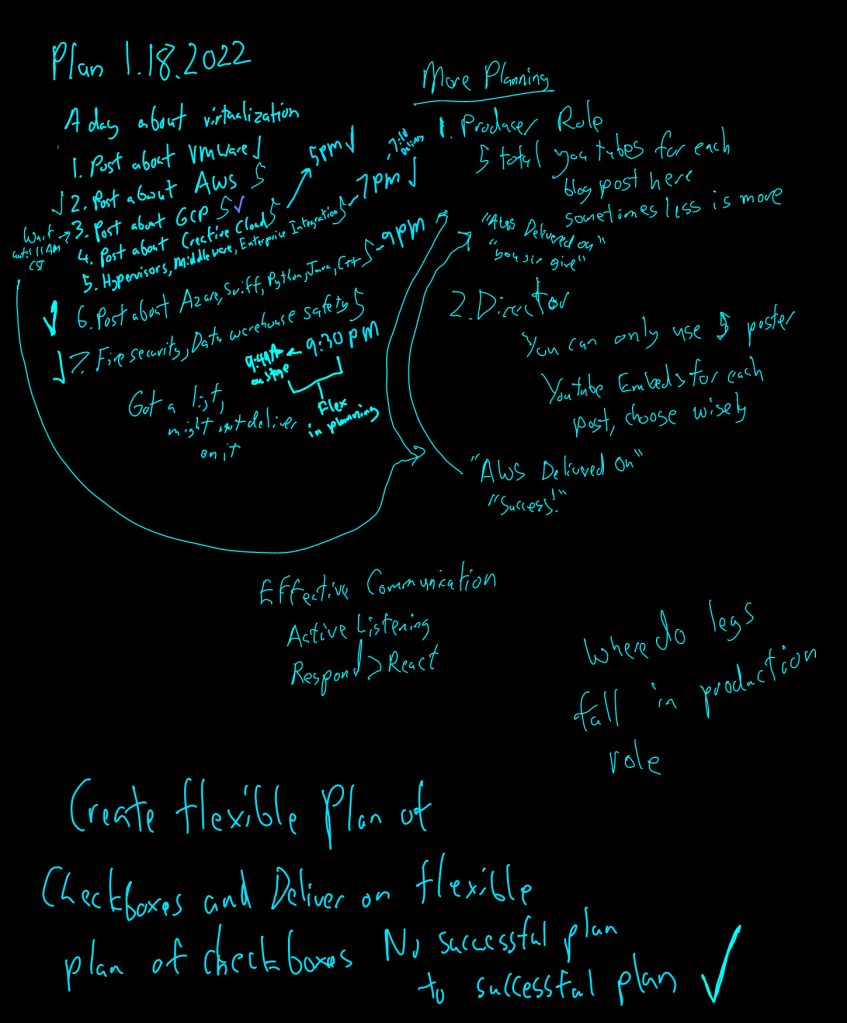 Plan 1.18.2022
A day about virtualization
1. Post about VMware ✓
✓ 2. Post about AWS 5
Wait until 11AM CST → 3. Post about GCP 5 ✓
4. Post about Creative Cloud 5 → 5pm ✓
5. Hypervisors, Middleware, Enterprise Integration 5 - 7pm ✓
✓ 6. Post about Azure, Swift, Python, Java, C++ 5 - 9pm
✓ 7. Fire security, Data warehouse safety 5
9:30pm
on stage
Flex
in planning
Got a list,
might not deliver
on it
More Planning
1. Producer Role
5 total youtubes for each
blog post here
sometimes less is more
"AWS Delivered on"
2. Director
You can only use 5 poster
Youtube Embeds for each
post, choose wisely
"AWS Delivered On"
"Success!"
Effective Communication
Active Listening
Respond > React
Where do legs
fall in production
role
Create flexible Plan of
Checkboxes and Deliver on flexible
plan of checkboxes No successful plan
to successful plan ✓